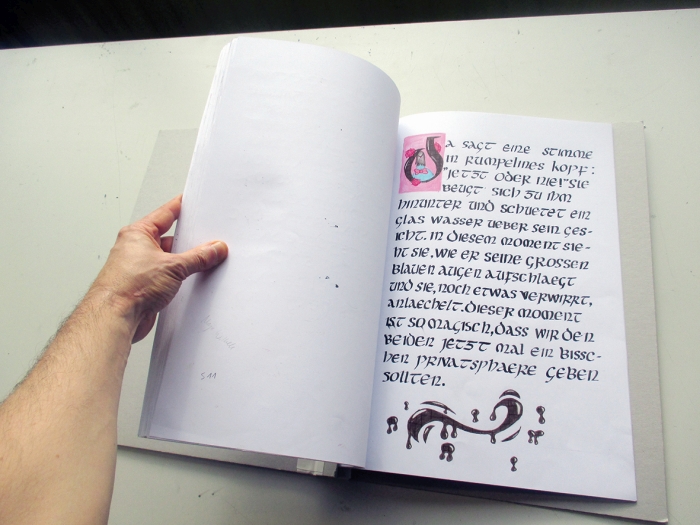 DA SAGT EINE STIMME
IN RUMPELINES KOPF:
"JETZT ODER NIE!" SIE
BEUGT SICH ZU IHM
HINUNTER UND SCHUETET EIN
GLAS WASSER UEBER SEIN GES-
ICHT. IN DIESEM MOMENT SIE-
HT SIE, WIE ER SEINE GROSSEN
BLAUEN AUGEN AUFSCHLAEGT
UND SIE, NOCH ETWAS VERWIRRT,
ANLAECHELT. DIESER MOMENT
IST SO MAGISCH, DASS WIR DEN
BEIDEN JETZT MAL EIN BISSC-
HEN PRIVATSPHAERE GEBEN
SOLLTEN.
S. 11